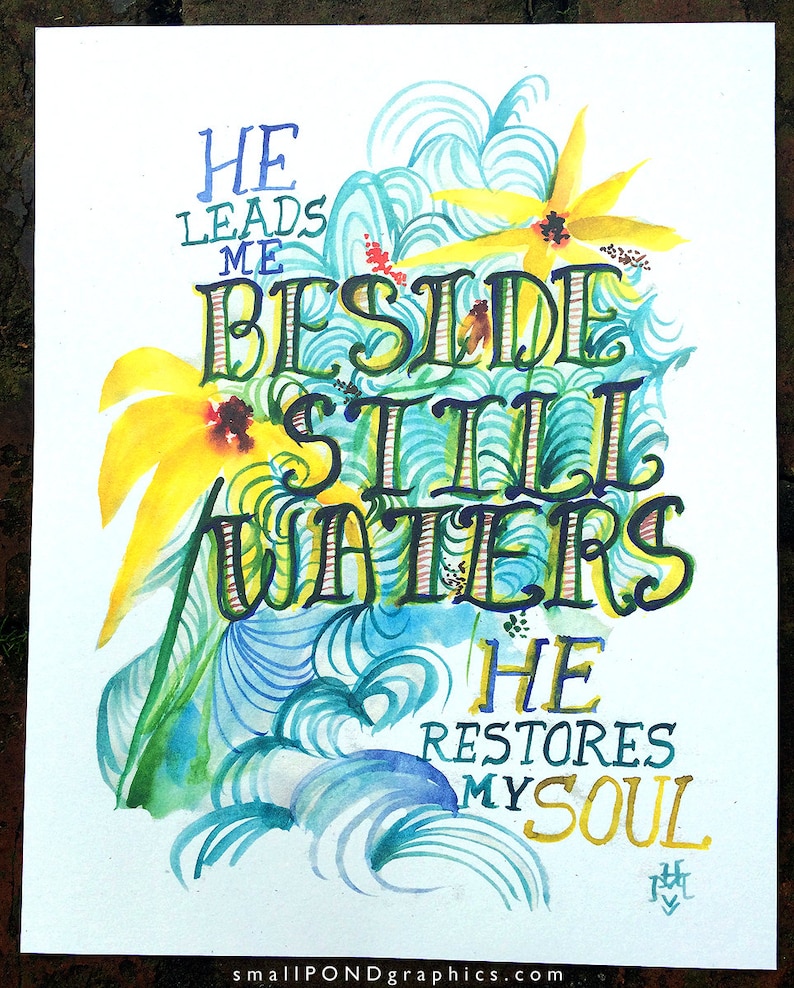 HE
LEADS
ME
BESIDE
STILL
WATERS
HE
RESTORES
MY SOUL
smallPONDgraphics.com